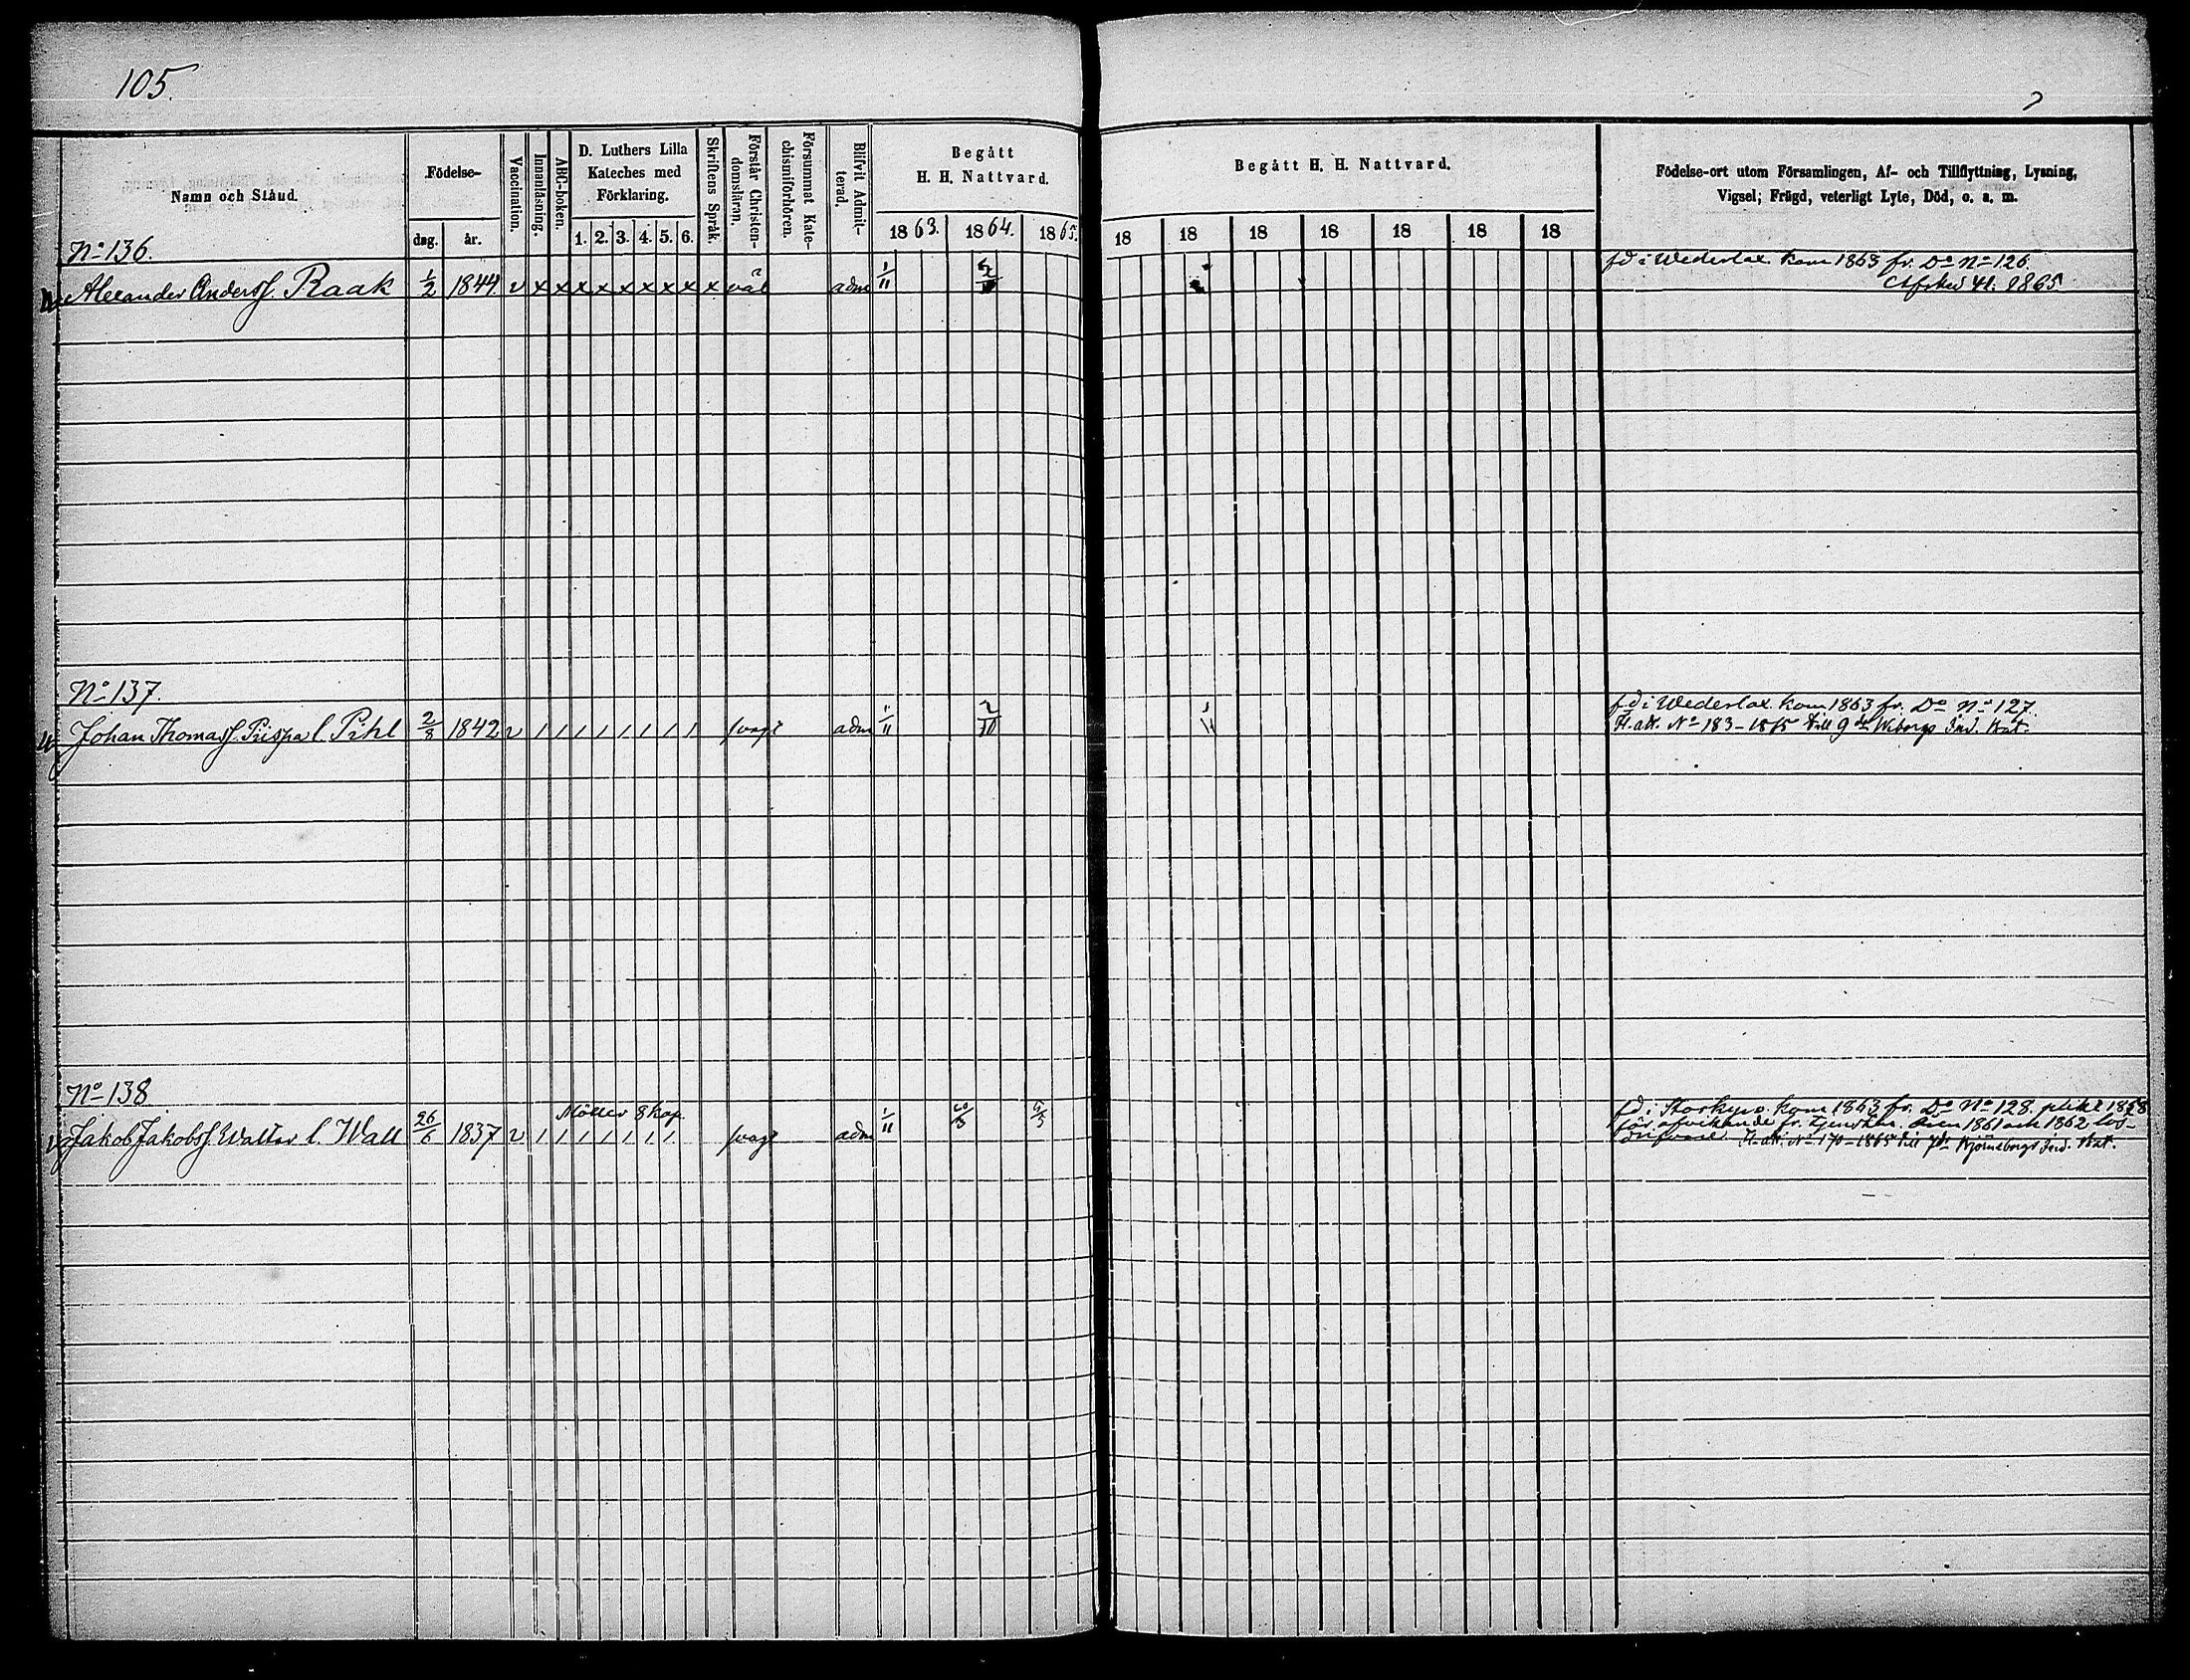 105.
Namn och Stånd.
Födelse-
dag. år.
Vaccination.
Innanläsning.
ABC-boken.
D. Luthers Lilla
Kateches med
Förklaring.
1. 2. 3. 4. 5. 6.
Skriftens Språk.
Förstår Christen-
domsläran.
Försummat Kate-
chismiförhören.
Blifvit Admit-
terad.
Begått
H. H. Nattvard.
1863. 1864. 1865.
Begått H. H. Nattvard.
18 18 18 18 18 18 18
Födelse-ort utom Församlingen, Af- och Tillflyttning, Lysning,
Vigsel; Frägd, veterligt Lyte, Död, o. s. m.
No 136.
Alexander Anderss. Raak 1/2 1844 v x x x x x x x x x väl adm 1/11
fd i Wederlax. kom 1863 fr. Do No 126.
Afsked 41. 1865
No 137.
Johan Thomass. Piispa l. Pihl 2/8 1842 v / / / / / / / / svagt adm 1/11 2/10
fd i Wederlax. kom 1863 fr. Do No 127.
Fl. att. No 183-1865 till 9de Wiborgs Ind. Bat.
No 138
Möller 8 kap.
Jakob Jakobss. Walter l. Wall 26/6 1837 v / / / / / / / / svagt adm 1/11
fd i Storkyro. kom 1863 fr. Do No 128. plikt 1858
för afvikande fr. tjensten. Åren 1861 och 1862 lös-
drifvare Fl. att. No 170-1865 till 7de Björneborgs Ind. Bat.